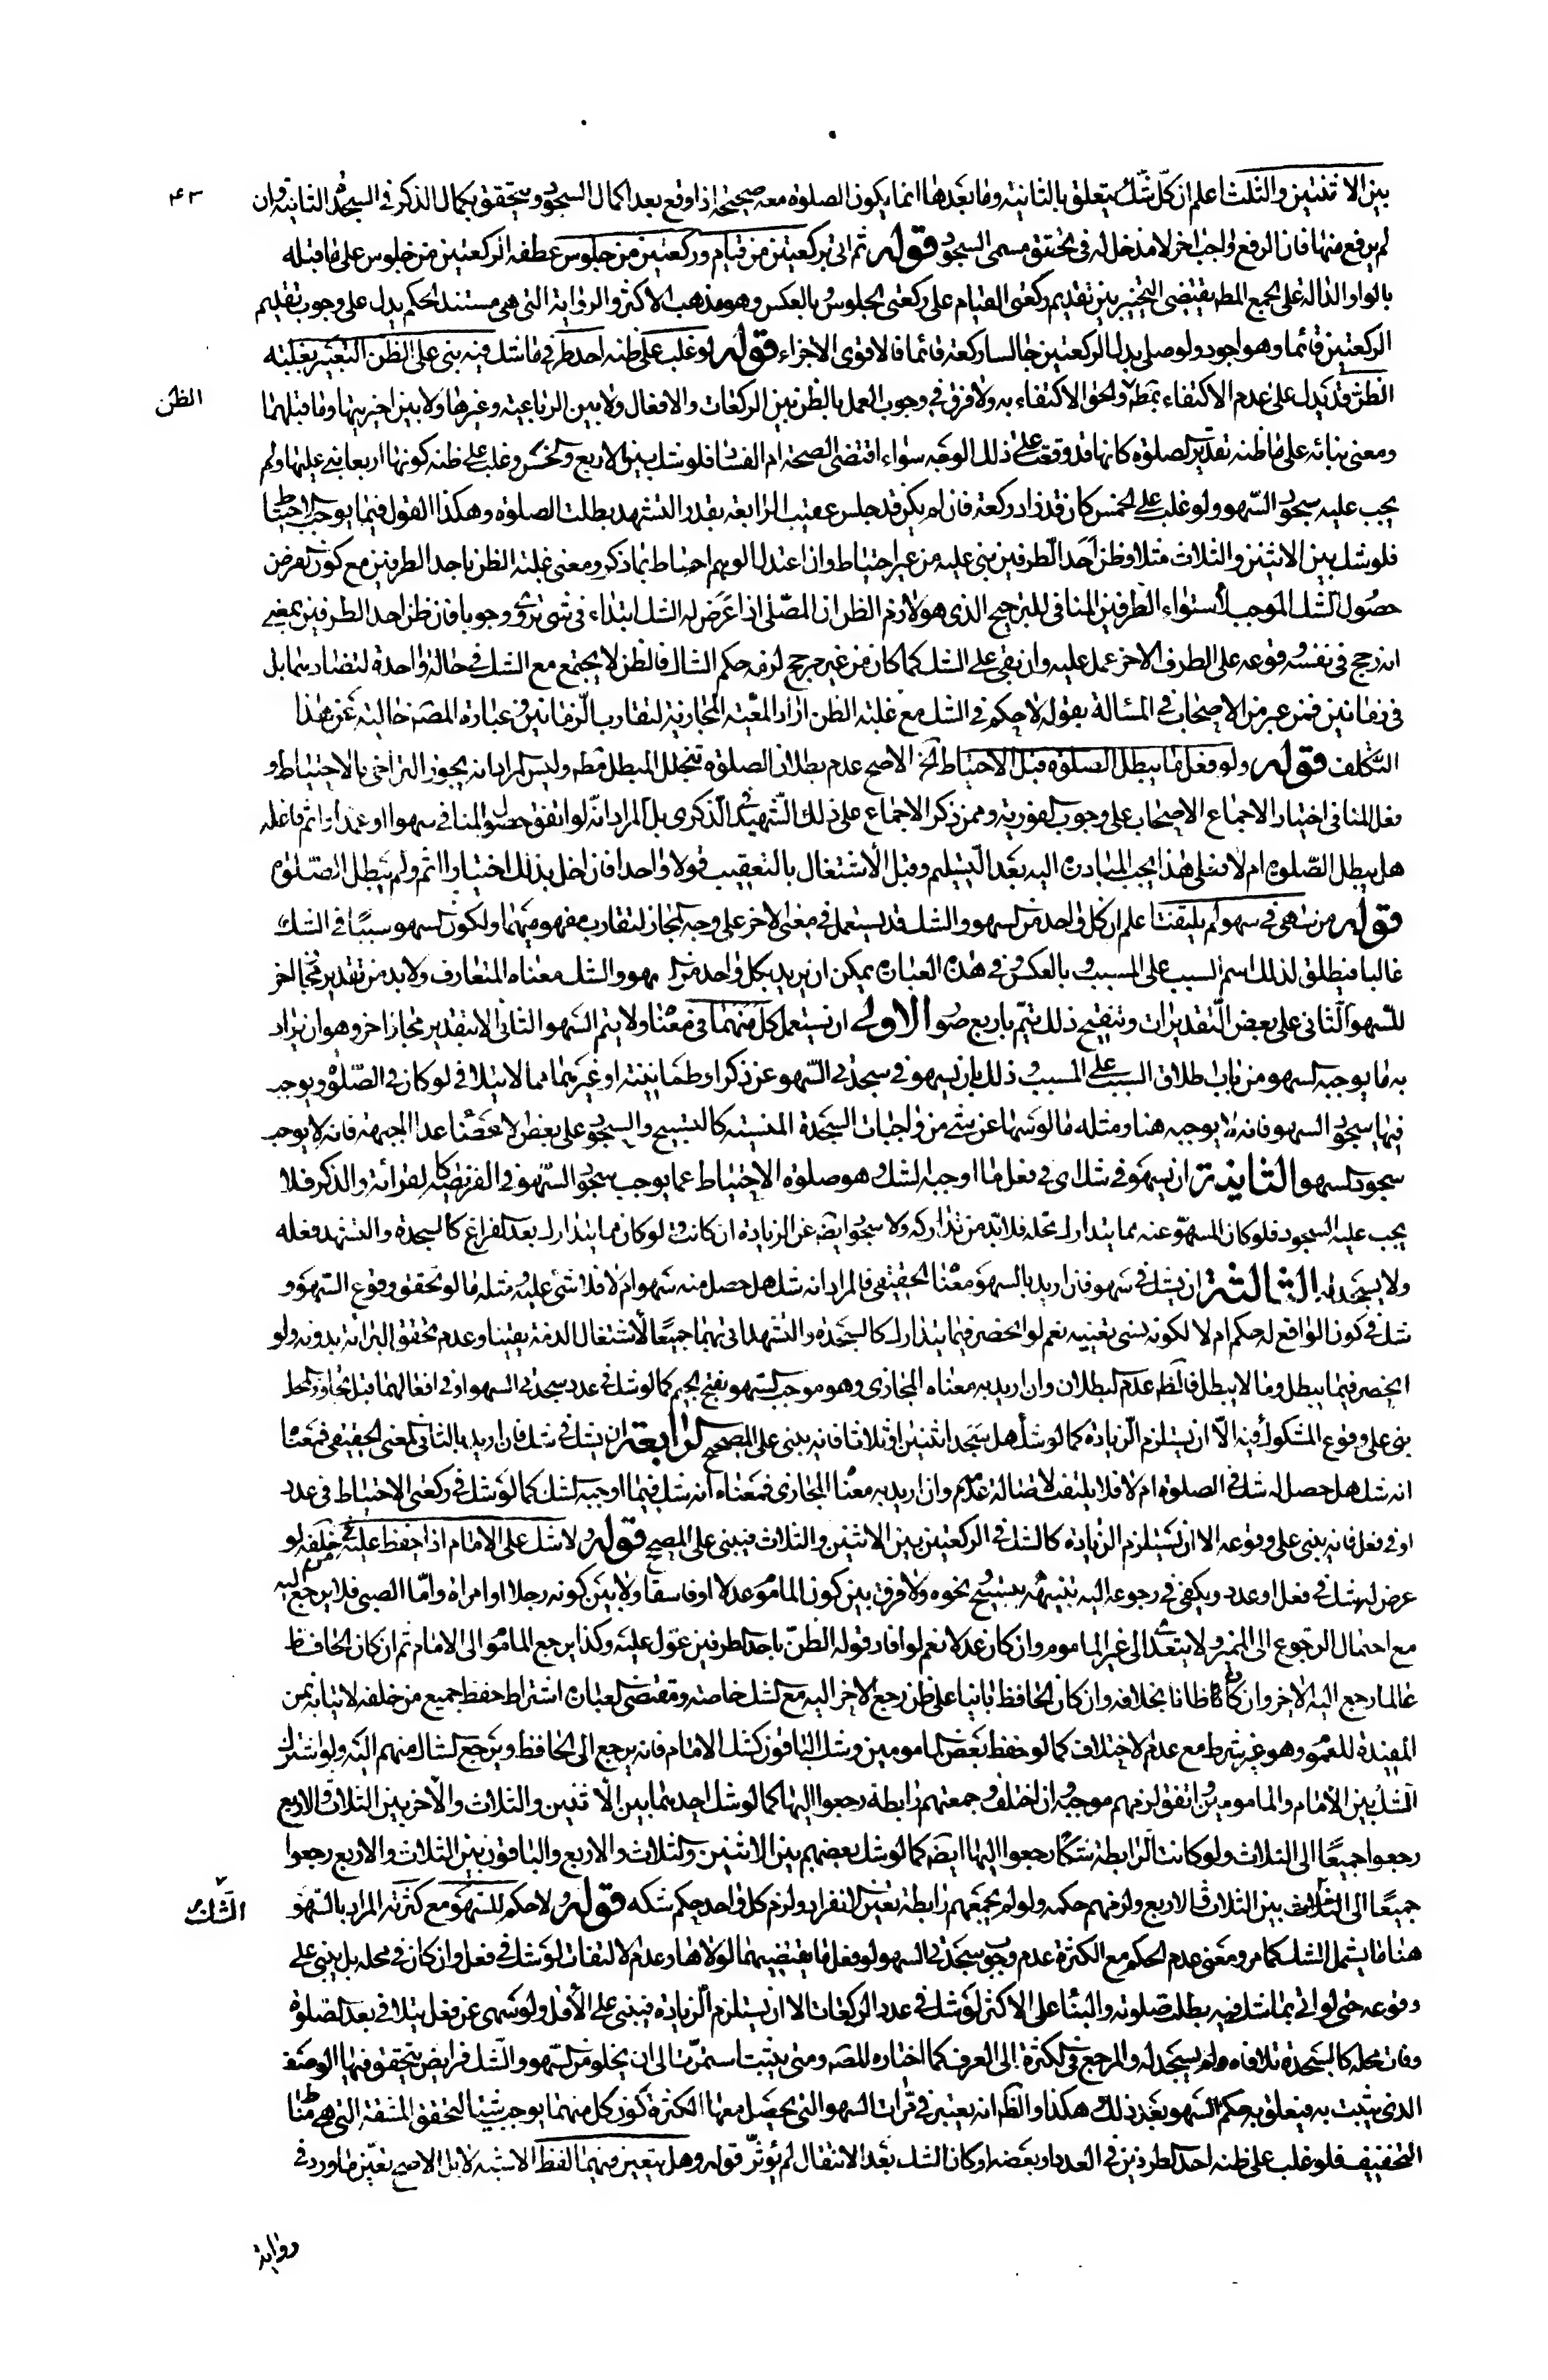 ۴۳
بين الاثنتين والثلث اعلم ان كل شك يتعلق بالثانية وما بعدها انما يكون الصلوة معه صحيحة اذا وقع بعد اكمال السجود ويتحقق بكمال الذكر في السجدة الثانية وان
لم يرفع منها فان الرفع واجب اخر لا مدخل له في تحقق مسمى السجود قوله ثم اتى بركعتين من قيام وركعتين من جلوس عطفه الركعتين من جلوس على ما قبله
بالواو الدالة على الجمع المط يقتضي التخيير بين تقديم ركعتي القيام على ركعتي الجلوس بالعكس وهو مذهب الاكثر والرواية التي هي مستند الحكم يدل على وجوب تقديم
الركعتين قائما وهو اجود ولو صلى بدل الركعتين جالسا ركعة قائما فالاقوى الاجزاء قوله لو غلب على ظنه احد طرفي ما شك فيه بنى على الظن التعبير بغلبته
الظن قد يدل على عدم الاكتفاء بمطه والحق الاكتفاء به ولا فرق في وجوب العمل بالظن بين الركعات والافعال ولا بين الرباعية وغيرها ولا بين اخيرتيها وما قبلهما
الظن
ومعنى بنائه على ما ظنه تقدير الصلوة كانها قد وقعت على ذلك الوجه سواء اقتضى الصحة ام الفساد فلو شك بين الاربع والخمس وغلب على ظنه كونها اربعا بنى عليها ولم
يجب عليه سجود السهو ولو غلب على الخمس كان قد زاد ركعة فان لم يكن قد جلس عقيب الرابعة بقدر التشهد بطلت الصلوة وهكذا القول فيما يوجب الاحتياط
فلو شك بين الاثنين والثلاث مثلا وظن احد الطرفين بنى عليه من غير احتياط وان اعتدل الوهم احتاط بما ذكر ومعنى غلبة الظن باحد الطرفين مع كون الفرض
حصول الشك الموجب لاستواء الطرفين المنافي للترجيح الذي هو لازم الظن ان المصلى اذا عرض له الشك ابتداء في شئ تروى وجوبا فان ظن احد الطرفين بمعنى
انه رجح في نفسه وقوعه على الطرف الاخر عمل عليه وان بقى على الشك كما كان من غير مرجح لزمه حكم الشاك فالظن لا يجتمع مع الشك في حالة واحدة لتضادهما بل
في زمانين فمن عبر من الاصحاب في المسألة بقوله لا حكم في الشك مع غلبة الظن اراد المعية المجازية لتقارب الزمانين وعبارة المصه خالية عن هذا
التكلف قوله ولو فعل ما يبطل الصلوة قبل الاحتياط الخ الاصح عدم بطلان الصلوة بتخلل المبطل مطه وليس المراد انه يجوز التراخى بالاحتياط و
فعل المنافي اختيارا لاجماع الاصحاب على وجوب الفورية وممن ذكر الاجماع على ذلك الشهيد في الذكرى بل المراد انه لو اتفق حصول المنافي سهوا او عمدا واثم فاعله
هل يبطل الصلوة ام لا فعلى هذا يجب المبادرة اليه بعد التسليم وقبل الاشتغال بالتعقيب قولا واحدا فان اخل بذلك اختيارا اثم ولم تبطل الصلوة
قوله من سهى في سهو لم يلتفت اعلم ان كل واحد من السهو والشك قد يستعمل في معنى الاخر على وجه المجاز لتقارب مفهوميهما ولكون السهو سببا في الشك
غالبا فيطلق لذلك اسم السبب على المسبب وبالعكس وفي هذه العبارة يمكن ان يريد بكل واحد من السهو والشك معناه المتعارف ولا بد من تقدير مجاز اخر
للسهو الثاني على بعض التقديرات وتنقيح ذلك يتم باربع صور الاولى ان يستعمل كل منهما في معناه ولا يتم السهو الثاني الا بتقدير مجاز اخر وهو ان يراد
به ما يوجبه السهو من باب اطلاق السبب على المسبب وذلك بان يسهو في سجدتي السهو عن ذكر او طمأنينة او غيرهما مما لا يتلافى لو كان في الصلوة ويوجب
فيها سجود السهو فانه لا يوجبه هنا ومثله ما لو سها عن شئ من واجبات السجدة المنسية كالتسبيح والسجود على بعض الاعضاء عدا الجبهة فانه لا يوجب
سجود السهو الثانية ان يسهو في شك اي في فعل ما اوجبه الشك وهو صلوة الاحتياط عما يوجب سجود السهو في الفريضة كالقرائة والذكر فلا
يجب عليه السجود فلو كان المسهو عنه مما يتدارك محله فلا بد من تداركه ولا سجود ايضه عن الزيادة ان كانت ولو كان مما يتدارك بعد الفراغ كالسجدة والتشهد فعله
ولا يسجد له الثالثة ان يشك في سهو فان اريد بالسهو معناه الحقيقي فالمراد انه شك هل حصل منه سهو ام لا فلا شئ عليه ومثله ما لو تحقق وقوع السهو و
شك في كون الواقع له حكم ام لا لكونه نسى تعيينه نعم لو انحصر فيما يتدارك كالسجدة والتشهد اتى بهما جميعا لاشتغال الذمة يقينا وعدم تحقق البرائة بدونه ولو
انحصر فيما يبطل وما لا يبطل فالظه عدم البطلان وان اريد به معناه المجازي وهو موجب السهو بفتح الجيم كما لو شك في عدد سجدتي السهو او في افعالهما قبل تجاوز المحل
بنى على وقوع المشكوك فيه الا ان يستلزم الزيادة كما لو شك هل سجد اثنتين او ثلاثا فانه يبنى على المصحح الرابعة ان يشك في شك فان اريد بالثاني المعنى الحقيقي فمعناه
انه شك هل حصل له شك في الصلوة ام لا فلا يلتفت لاصالة عدمه وان اريد به معناه المجازي فمعناه انه شك فيما اوجبه الشك كما لو شك في ركعتي الاحتياط في عدد
او في فعل فانه يبنى على وقوعه الا ان يستلزم الزيادة كالشك في الركعتين بين الاثنين والثلاث فيبنى على المصحح قوله ولا شك على الامام اذا حفظ عليه من خلفه لو
عرض له شك في فعل او عدد ويكفي في رجوعه اليه تنبيهه بتسبيح ونحوه ولا فرق بين كون الماموم عدلا او فاسقا ولا بين كونه رجلا او امراة واما الصبى فلا يرجع اليه
مع احتمال الرجوع الى المميز ولا يتعدى الى غير الماموم وان كان عدلا نعم لو افاد قوله الظن باحد الطرفين عول عليه وكذا يرجع الماموم الى الامام ثم ان كان الحافظ
عالما رجع اليه الاخر وان كان ظانا بخلافه وان كان الحافظ بانيا على ظن رجع الاخر اليه مع الشك خاصة ومقتضى العبارة اشتراط حفظ جميع من خلفه لاتيانه بمن
المفيدة للعموم وهو غير شرط مع عدم الاختلاف كما لو حفظ بعض المامومين وشك الباقون كشك الامام فانه يرجع الى الحافظ ويرجع الشاك منهم اليه ولو اشترك
الشك بين الامام والمامومين واتفق لزمهم موجبه وان اختلف وجمعتهم رابطة رجعوا اليها كما لو شك احدهما بين الاثنين والثلاث والاخر بين الثلاث والاربع
رجعوا جميعا الى الثلاث ولو كانت الرابطة شكا رجعوا اليها ايضه كما لو شك بعضهم بين الاثنين والثلاث والاربع والباقون بين الثلاث والاربع رجعوا
جميعا الى الشك بين الثلاث والاربع ولزمهم حكمه ولو لم يجمعهم رابطة تعين الانفراد ولزم كل واحد حكم شكه قوله ولا حكم للسهو مع كثرته المراد بالسهو
الشك
هنا ما يشمل الشك كما مر ومعنى عدم الحكم مع الكثرة عدم وجوب سجدتي السهو لو فعل ما يقتضيهما لولاها وعدم الالتفات لو شك في فعل وان كان في محله بل يبنى على
وقوعه حتى لو اتى بما شك فيه بطلت صلوته والبناء على الاكثر لو شك في عدد الركعات الا ان يستلزم الزيادة فيبنى على الاقل ولو سهى عن فعل يتلافى بعد الصلوة
وفات محله كالسجدة تلافاه ولم يسجد له والمرجع في الكثرة الى العرف كما اختاره المصه ومتى يثبت استمرت الى ان يخلو من السهو والشك فرايض يتحقق فيها الوصف
الذي يثبت به فيتعلق به حكم السهو بعد ذلك وهكذا والظه انه يعتبر في مرات السهو التي يحصل معها الكثرة كون كل منهما يوجب شيئا لتحقق المشقة التي هي مناط
التخفيف فلو غلب على ظنه احد الطرفين في العدد او بعضه او كان الشك بعد الانتقال لم يؤثر قوله وهل يتعين فيهما الفظ الاشبه لا بل الاصح تعين ما ورد في
رواية